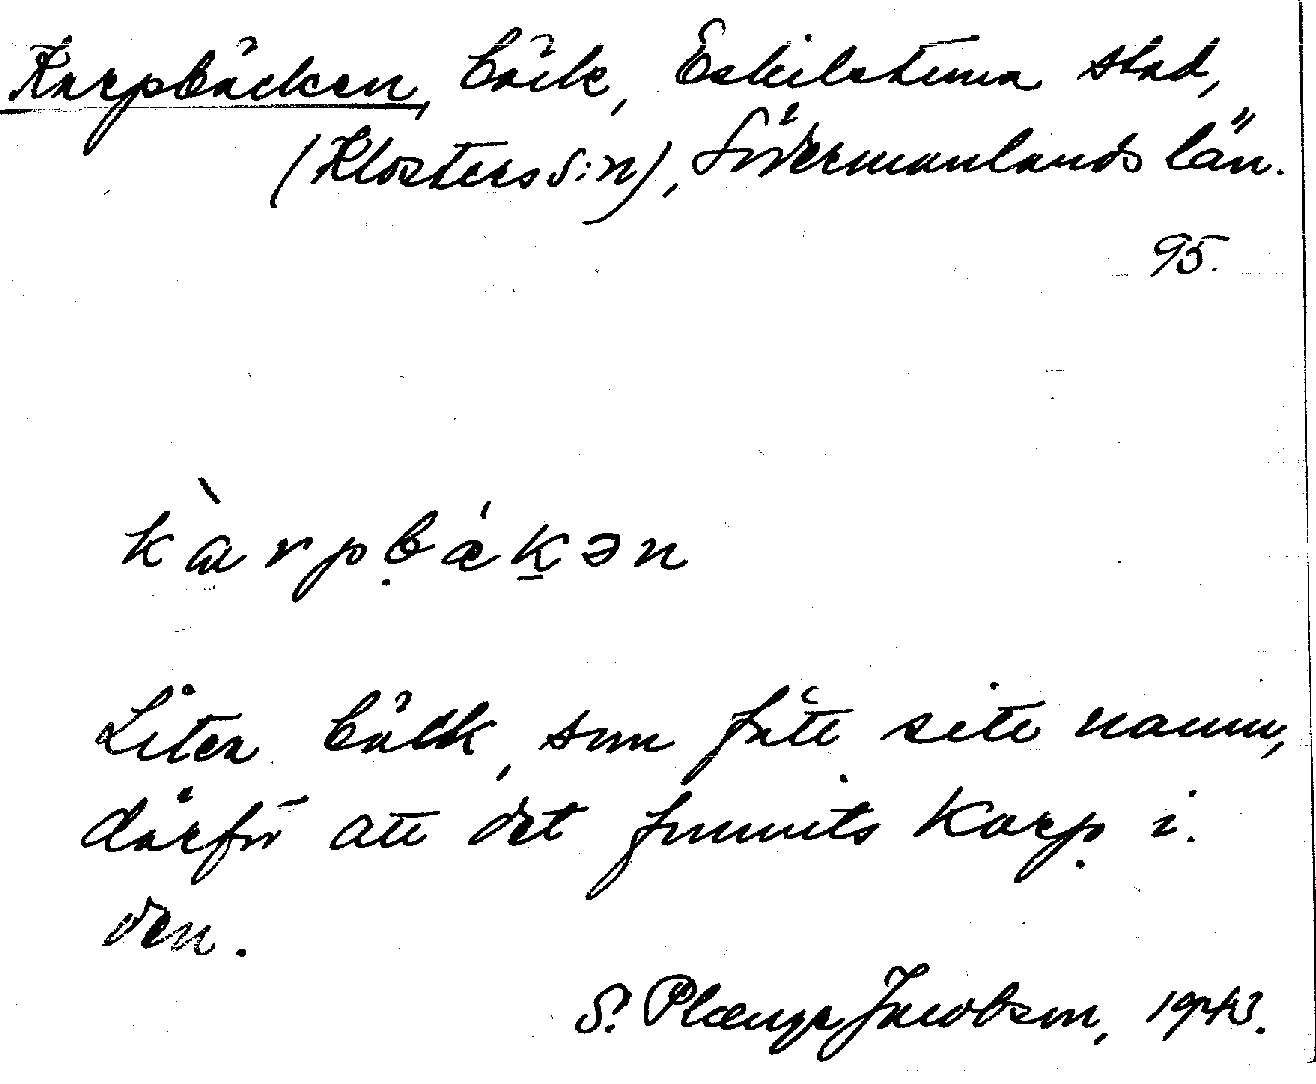 Karpbäcken, bäck, Eskilstuna stad,
(Klosters s:n), Södermanlands län.
95.
kàrpbækən
Liten bäck, som fått sitt namn,
därför att det funnits karp i
den.
S. Jacobson, 1943.